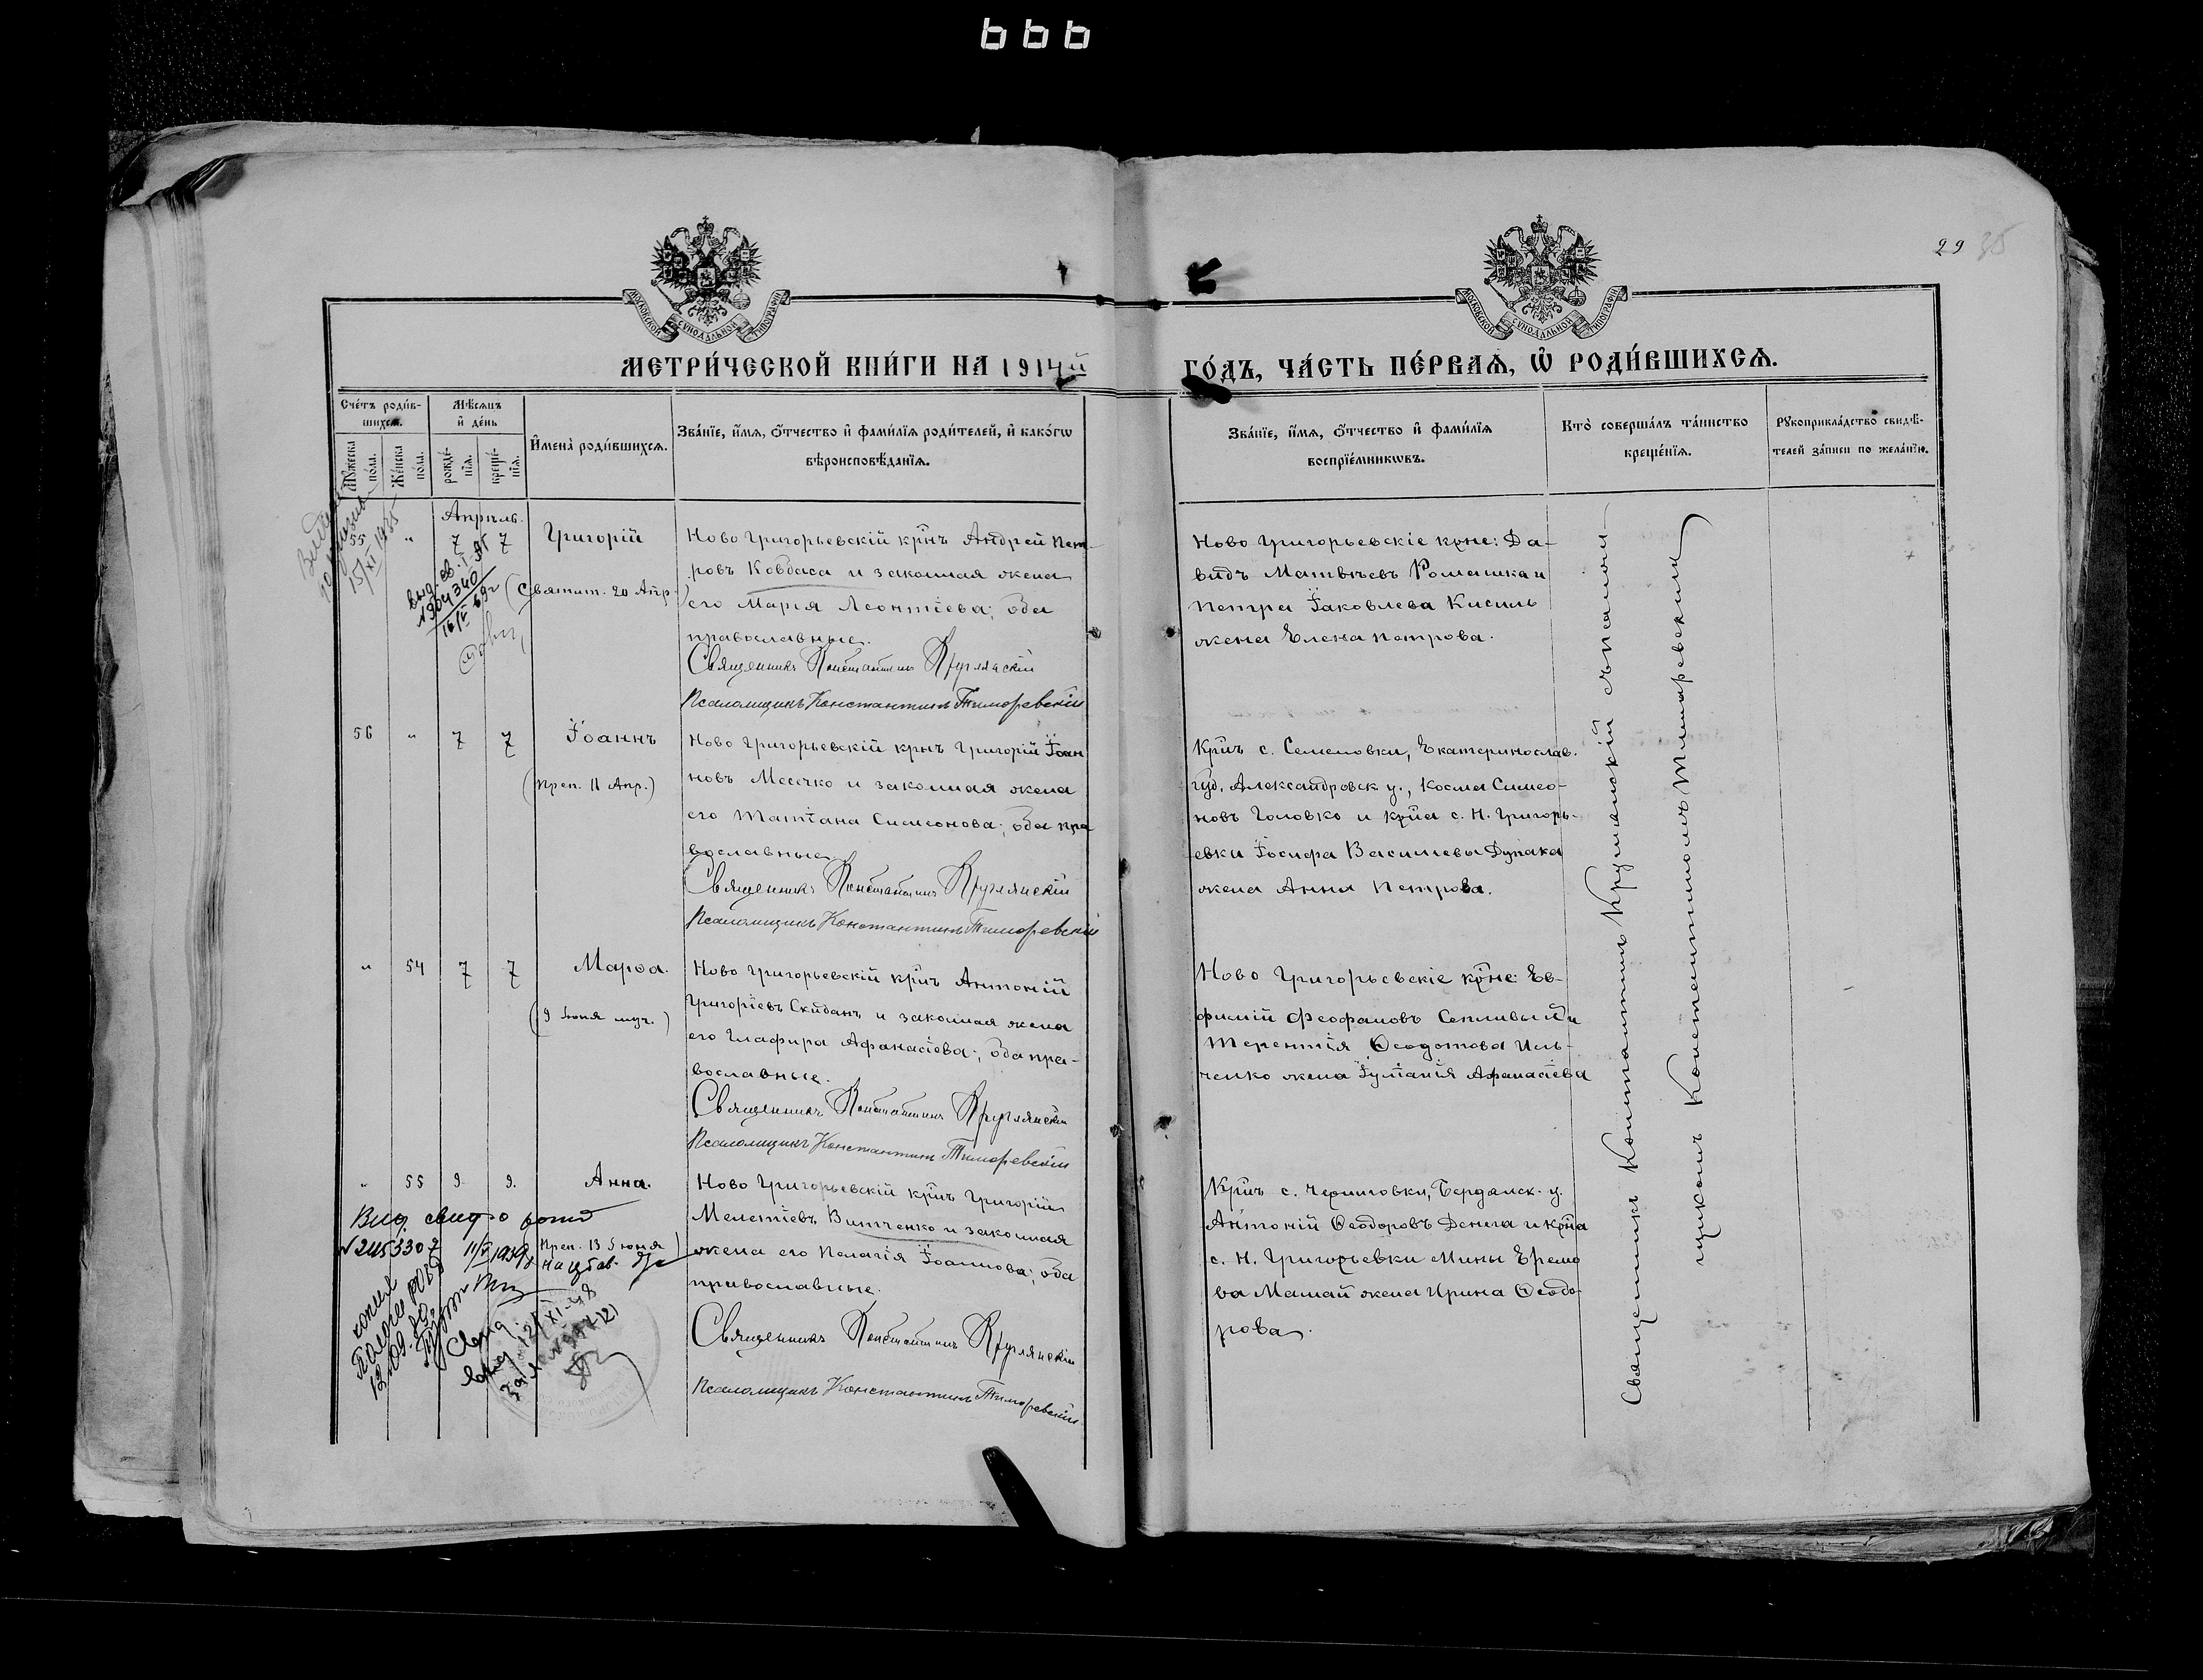 666
29 35
МОСКОВСКОЙ СУНОДАЛЬНОЙ ТИПОГРАФІИ
МОСКОВСКОЙ СУНОДАЛЬНОЙ ТИПОГРАФІИ
МЕТРИ́ЧЕСКОЙ КНИ́ГИ НА 1914й
ГО́ДЪ, ЧА́СТЬ ПЕ́РВАѦ, Ѡ РОДИ́ВШИХСѦ.
Сче́тъ роди́в-
шихсѧ.
Мꙋ́жеска по́ла.
Же́нска по́ла.
Мѣ́сѧцъ
и де́нь
рожде́-нїѧ.
креще́-нїѧ.
Имена̀ роди́вшихсѧ.
Зва́нїе, и́мѧ, ѻ́тчество и фами́лїѧ роди́телей, и како́гѡ
вѣроисповѣ́данїѧ.
Зва́нїе, и́мѧ, ѻ́тчество и фами́лїѧ
воспрїе́мникѡвъ.
Кто̀ соверша́лъ та́инство
креще́нїѧ.
Рꙋкоприкла́дство свидѣ́-
телей за́писи по жела́нїю.
Апрѣль.
55 " 7 7 Григорій
(Святит. 20 Апр.)
15/XI 1935
выд. св. I-ЯП
№904340
16/V 69г
Ново Григорьевскій крнъ Андрей Пет-
ровъ Ковбаса и законная жена
его Марія Леонтіева; оба
православные.
Священникъ Константинъ Круглянскій
Псаломщикъ Константинъ Тиморевскій
Ново Григорьевскіе крне: Да-
видъ Матвѣевъ Ромашка и
Петра Іаковлева Кисиль
жена Елена Петрова.
56 " 7 7 Іоаннъ
(Преп. 11 Апр.)
Ново Григорьевскій крнъ Григорій Іоан
новъ Месечко и законная жена
его Татіана Симеонова; оба пра
вославные
Священникъ Константинъ Круглянскій
Псаломщикъ Константинъ Тиморевскій
Крнъ с. Семеновки, Екатеринослав.
губ. Александровск у., Косма Симео-
новъ Головко и крна с. Н. Григорь-
евки Іосифа Васильева Дупака
жена Анна Петрова.
" 54 7 7 Марѳа.
(9 Іюня муч.)
Ново Григорьевскій крнъ Антоній
Григоріевъ Скиданъ и законная жена
его Глафира Афанасіева; оба пра-
вославные.
Священникъ Константинъ Круглянскій
Псаломщикъ Константинъ Тиморевскій
Ново Григорьевскіе крне: Ев-
фимій Феофановъ Сепливый и
Терентія Ѳеодотова Иль-
ченко жена Іуліанія Афанасіева
" 55 9 9. Анна.
Преп. 13 Іюня)
Ново Григорьевскій крнъ Григорій
Мелетіевъ Витченко и законная
жена его Пелагія Іоаннова; оба
православные.
Священникъ Константинъ Круглянскій
Псаломщикъ Константинъ Тиморевскій
Крнъ с. Черниговки, Бердянск. у.
Антоній Ѳеодоровъ Денега и крна
с. Н. Григорьевки Мины Ереме
ва Мамай жена Ирина Ѳеодо-
рова.
№245330 7 11/V 1939
Священникъ Константинъ Круглянскій съ псалом-
щикомъ Константиномъ Тиморевскимъ